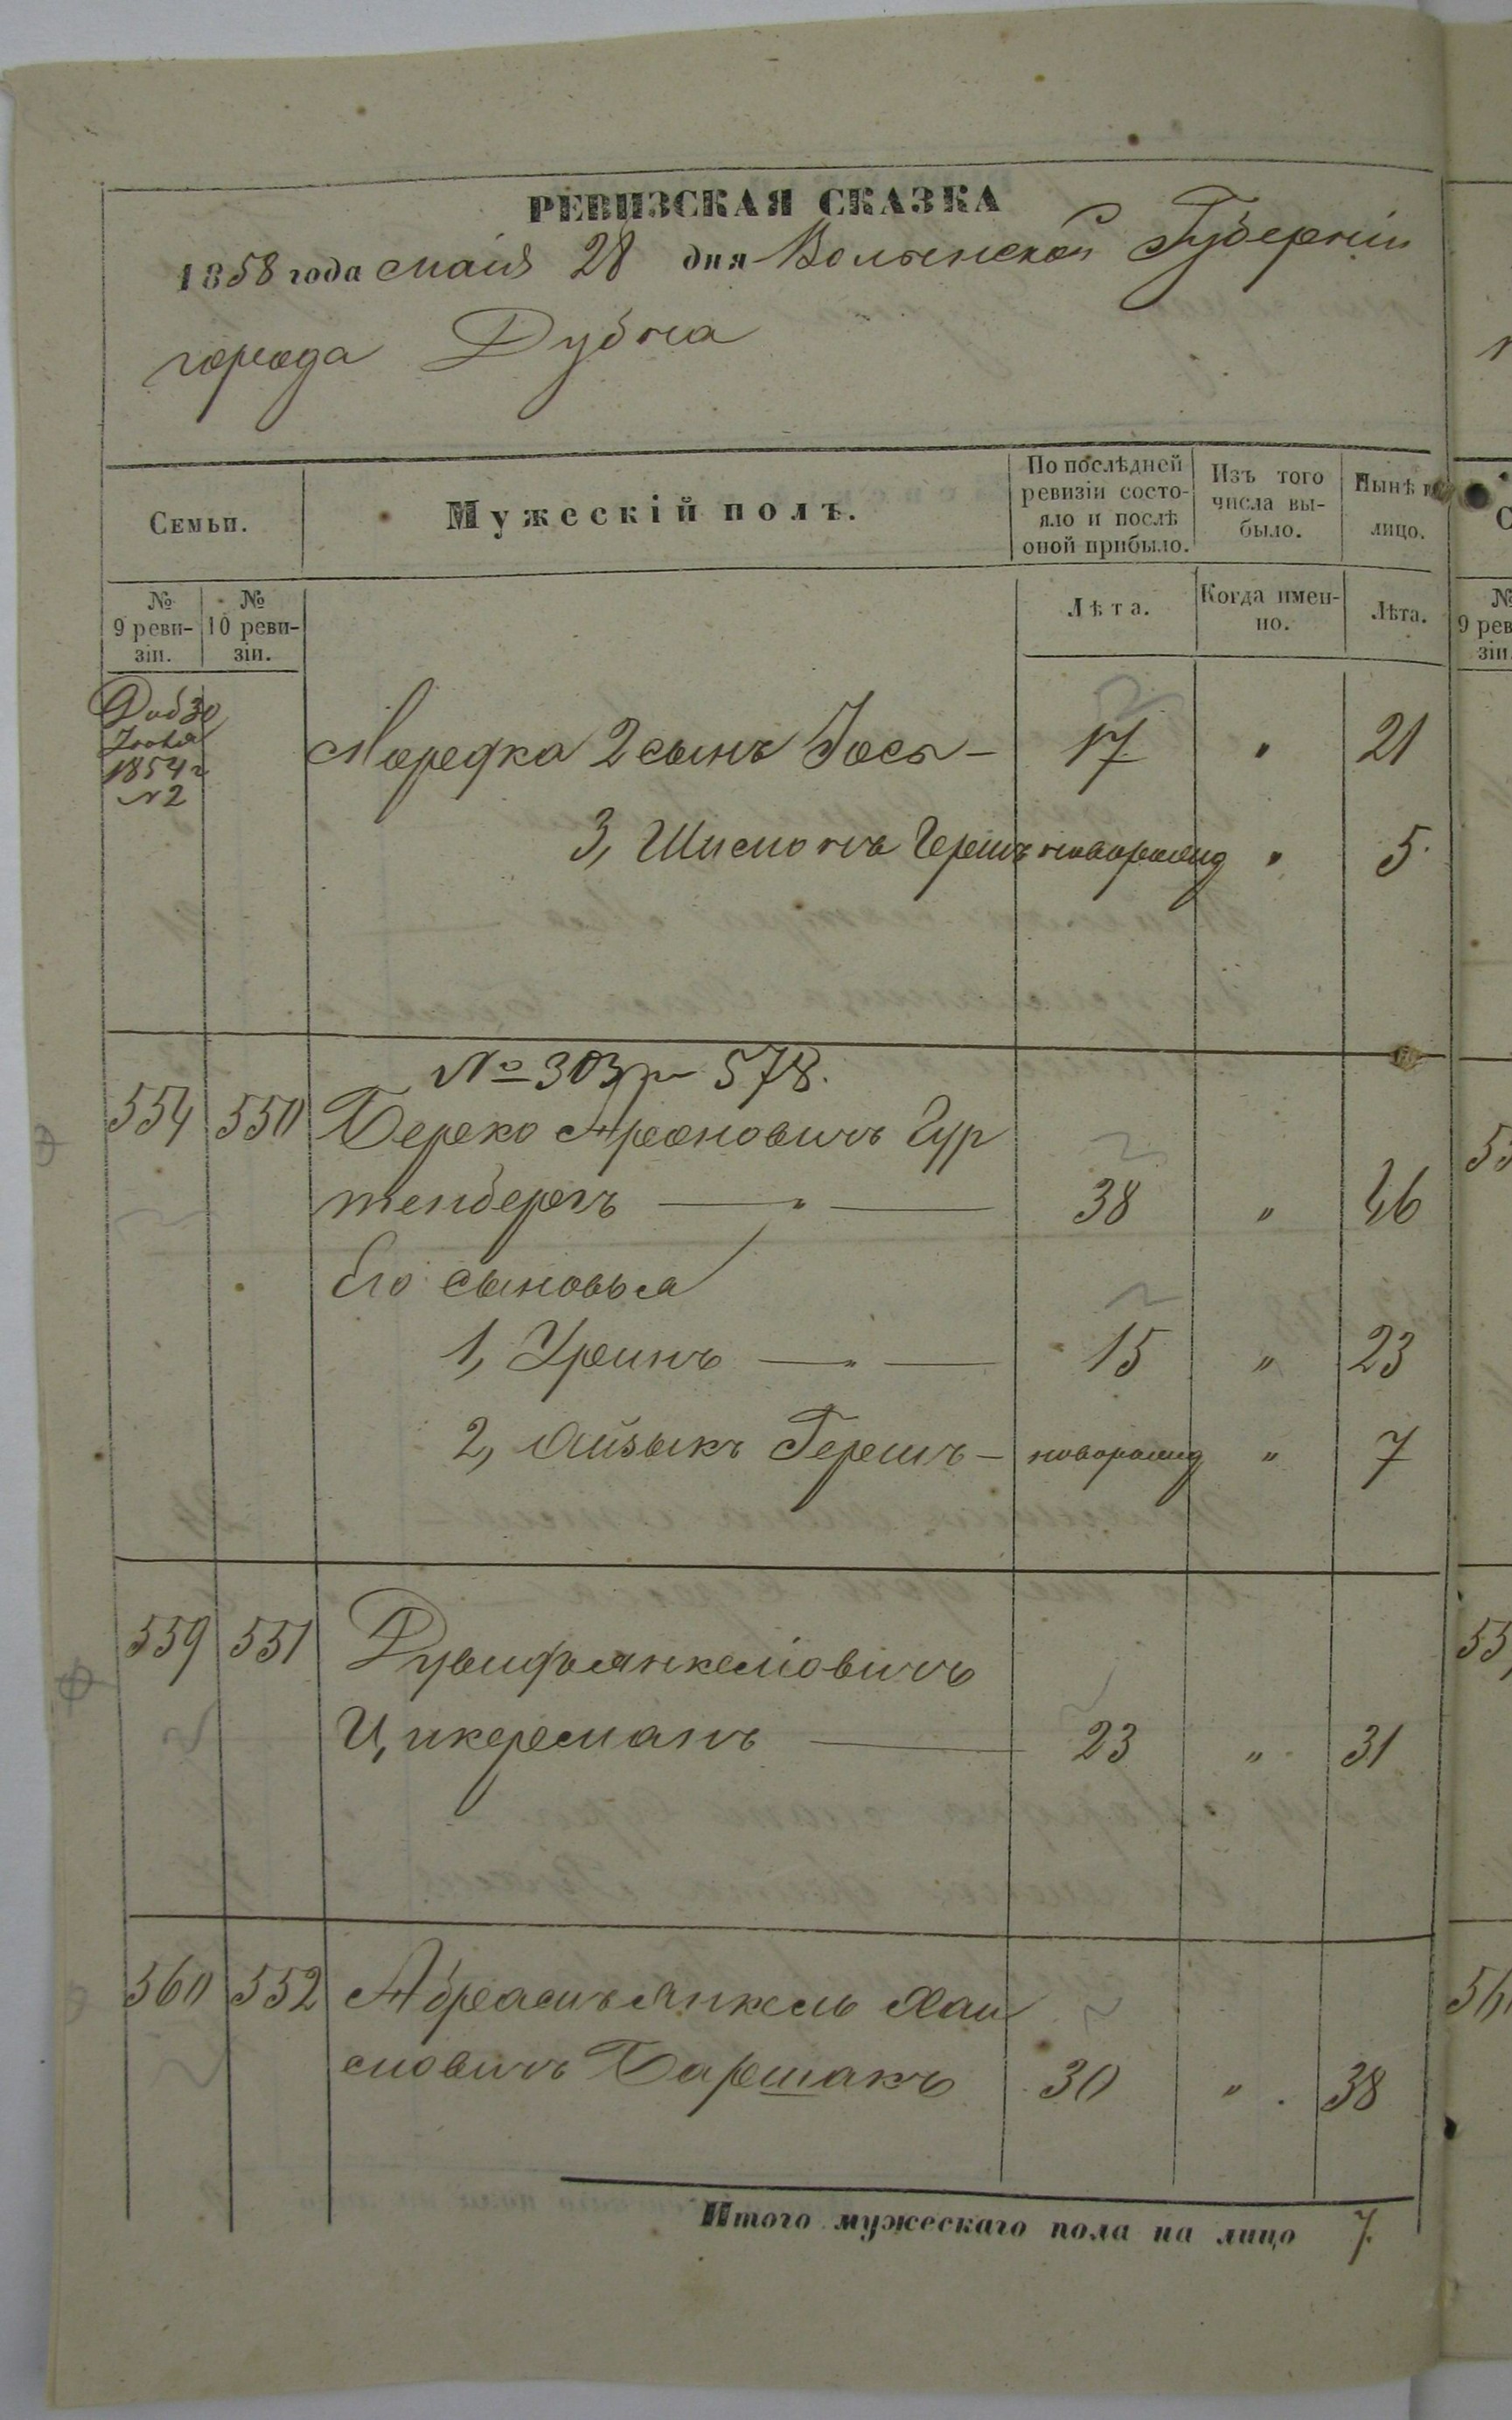 РЕВИЗСКАЯ СКАЗКА
1858 года маія 28 дня Волынской Губерніи
города Дубна
Семьи.
Мужескій полъ.
По послѣдней ревизіи состо-
яло и послѣ
оной прибыло.
Изъ того
числа вы-
было.
Нынѣ
лицо.
№
9 реви-
зіи.
№
10 реви-
зіи.
Лѣта.
Когда имен-
но.
Лѣта.
Доб 30
1854 г
№ 2
Мордка 2 сынъ Іось — 17 " 21
3, Шимонъ Гершъ новорожд " 5
№ 303 578.
554 550 Берко Ароновичъ Гур
тенбергъ — " — 38 " 46
Его сыновья
1, Уринъ — " — 15 " 23
2, Айзыкъ Гершъ — новорожд " 7
559 551 Рувиф Янкеліовичъ
Цикерманъ — 23 " 31
560 552 Абрамъ Янкель Хаи
мовичъ Баршакъ 30 " 38
Итого мужескаго пола на лицо 7